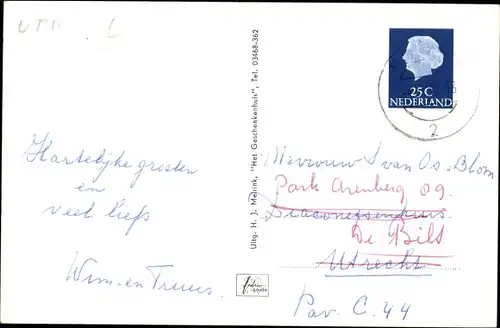 UTR. L
25 C
NEDERLAND
2
Uitg. H. J. Melrink, "Het Geschenkenhuis", Tel. 03468-362
Hartelijke groeten
en
veel liefs
Wim en Truus.
Mevrouw S van Os-Blom
Park Arenberg 89.
Diaconessenhuis
De Bilt
Utrecht
Pav. C. 44